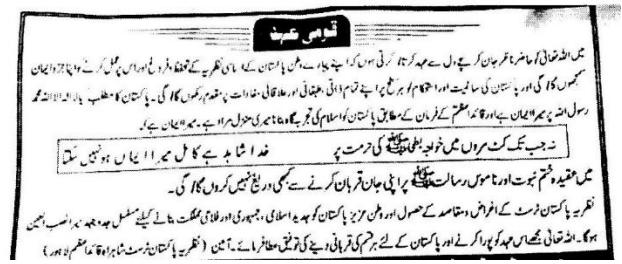 قومی عہد
میں اللہ تعالیٰ کو حاضر ناظر جان کر سچے دل سے عہد کرتا / کرتی ہوں کہ اپنے پیارے وطن پاکستان کے اساسی نظریہ کے تحفظ، فروغ اور اس پر عمل کرنے کو اپنا جزو ایمان
سمجھوں گا / گی اور پاکستان کی سالمیت اور استحکام کو ہر سطح پر اپنے تمام ذاتی، طبقاتی اور علاقائی مفادات پر مقدم رکھوں گا / گی۔ پاکستان کا مطلب لا الٰہ الا اللہ محمد
رسول اللہ پر میرا ایمان ہے اور قائداعظم کے فرمان کے مطابق پاکستان کو اسلام کی تجربہ گاہ بنانا میری منزل مراد ہے۔ میرا ایمان ہے کہ
نہ جب تک کٹ مروں میں خواجہ بطحیٰ ﷺ کی حرمت پر خدا شاہد ہے کامل میرا ایماں ہو نہیں سکتا
میں عقیدہ ختم نبوت اور ناموس رسالت ﷺ پر اپنی جان قربان کرنے سے بھی دریغ نہیں کروں گا / گی۔
نظریہ پاکستان ٹرسٹ کے اغراض و مقاصد کے حصول اور وطن عزیز پاکستان کو جدید اسلامی، جمہوری اور فلاحی مملکت بنانے کیلئے مسلسل جدوجہد میرا نصب العین
ہو گا۔ اللہ تعالیٰ مجھے اس عہد کو پورا کرنے اور پاکستان کے لئے ہر قسم کی قربانی دینے کی توفیق عطا فرمائے۔ آمین (نظریہ پاکستان ٹرسٹ شاہراہ قائداعظم لاہور)